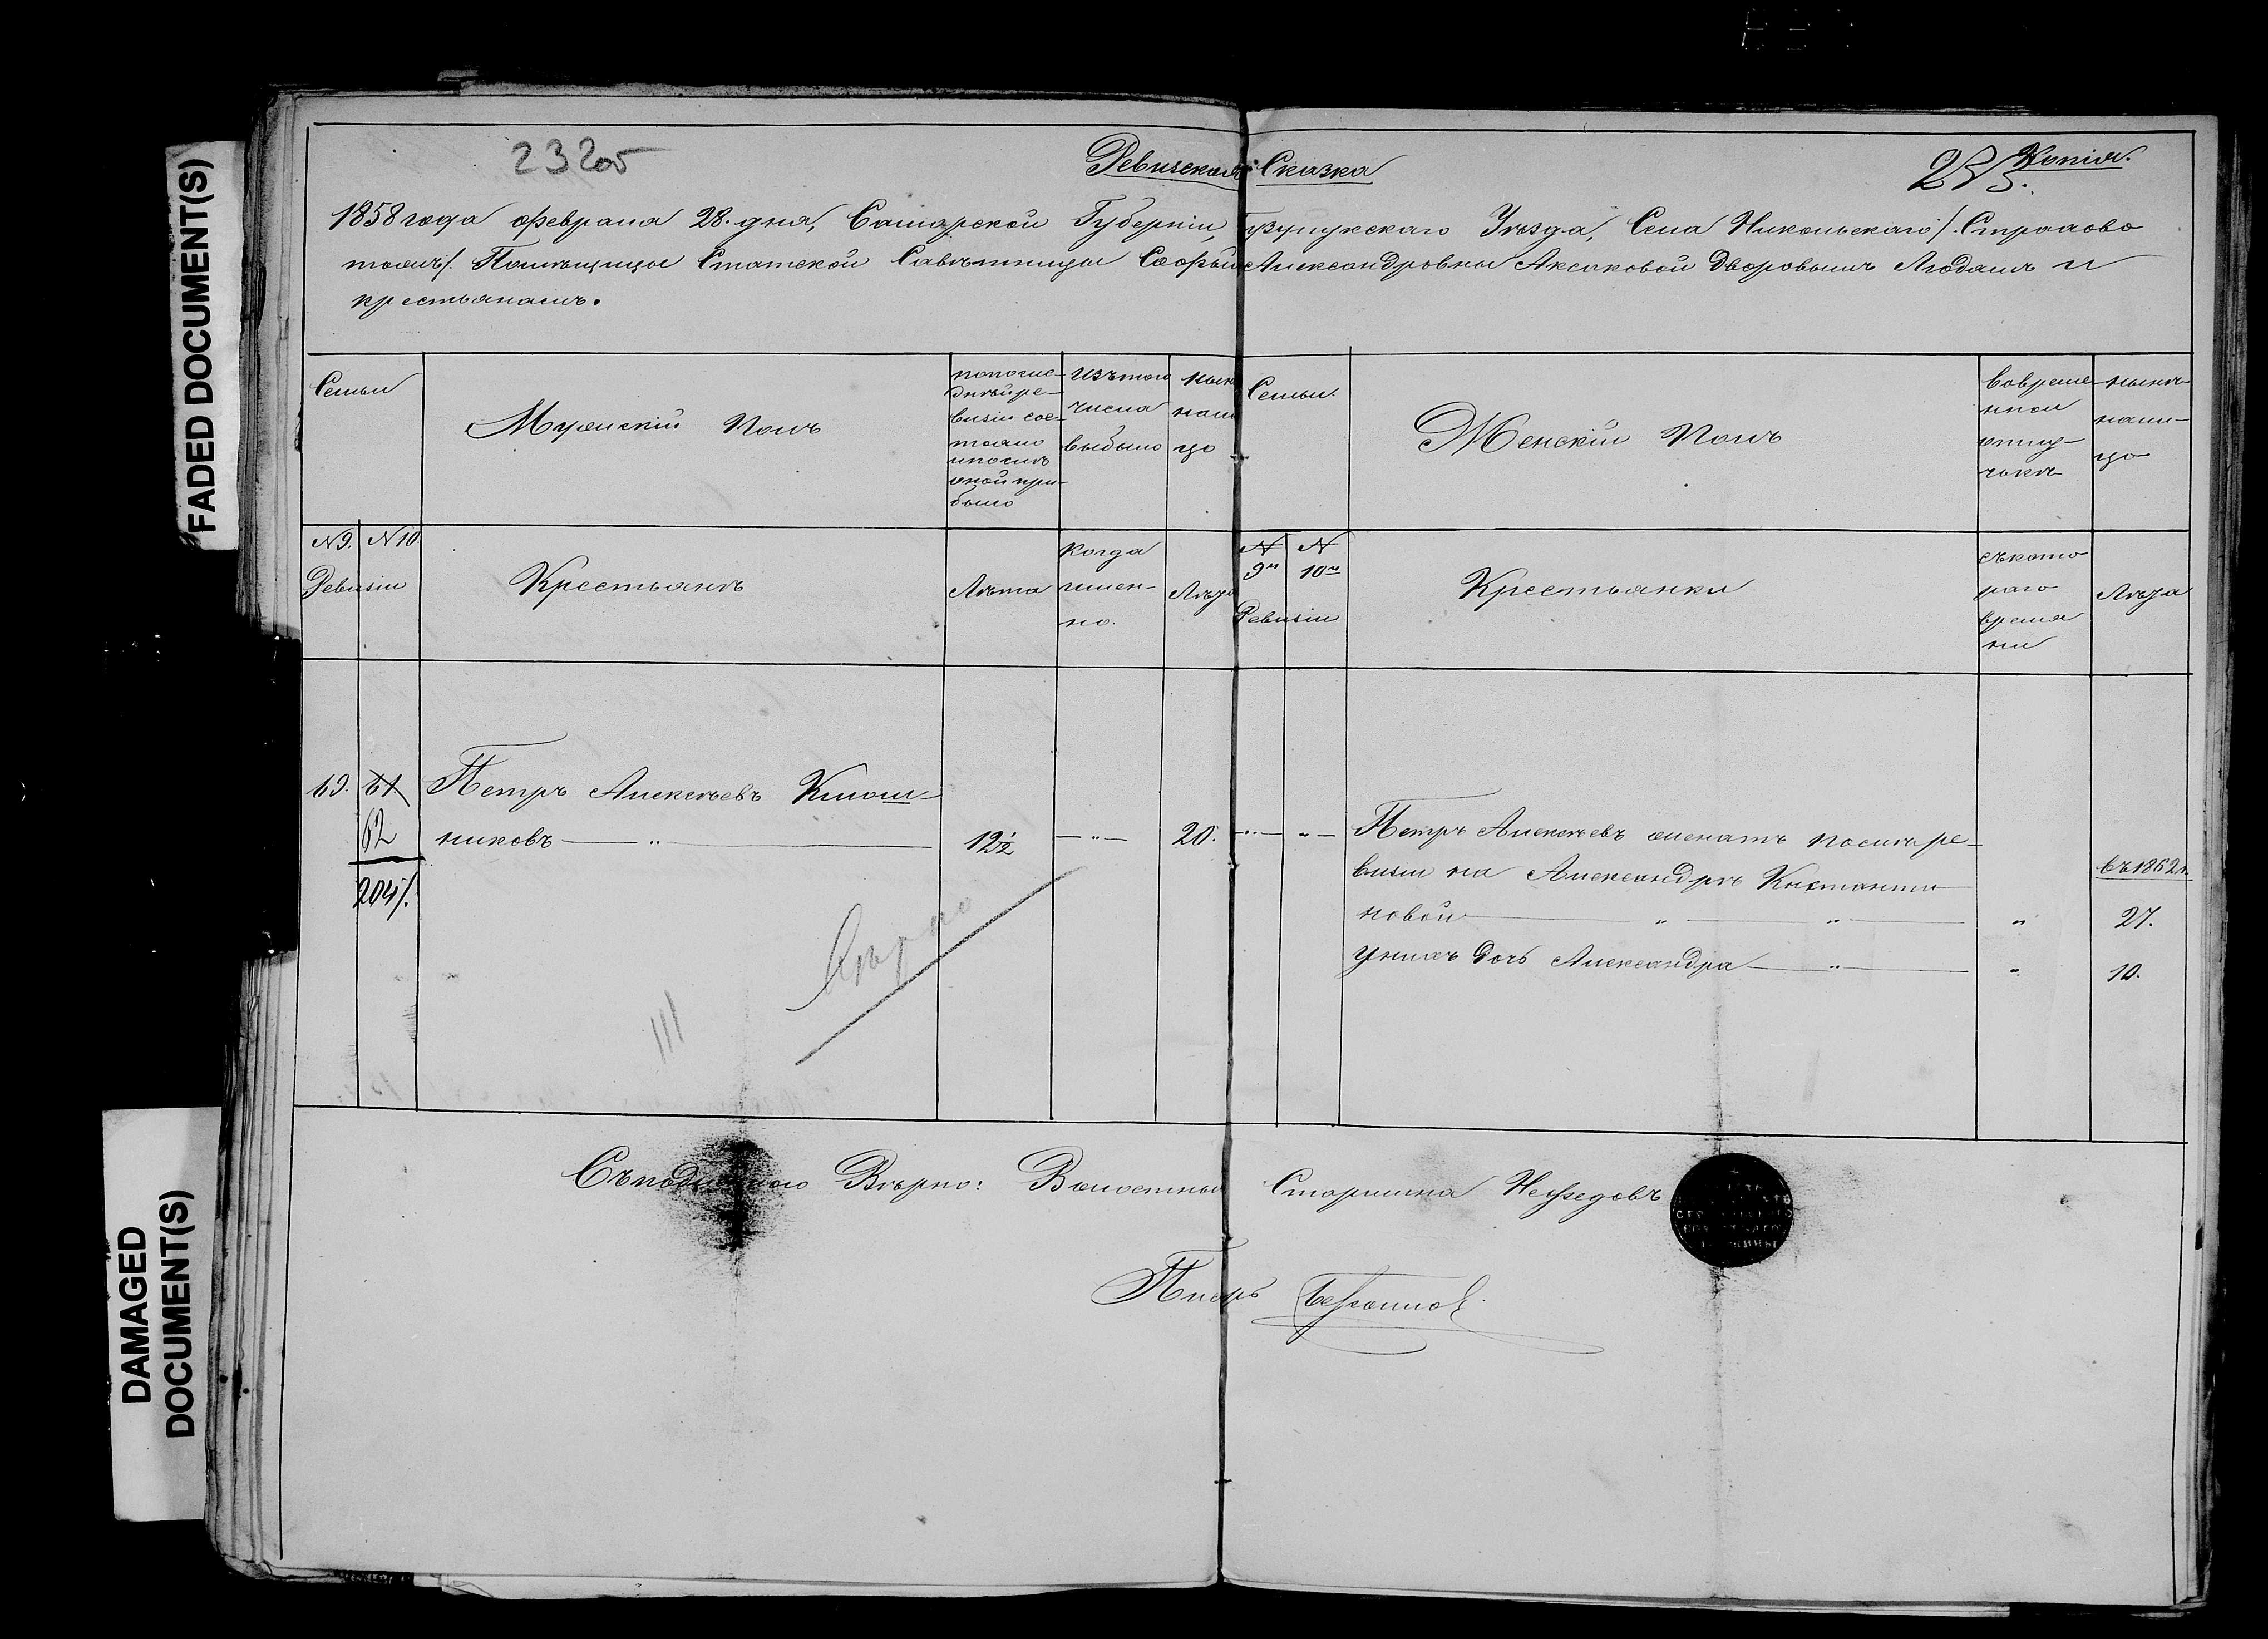 FADED DOCUMENT(S)
DAMAGED
DOCUMENT(S)
232об
Ревизская Сказка
Копія.
233.
1858 года Февраля 28. дня, Самарской Губерніи, Бузулукскаго Уѣзда, Села Никольскаго /. Страхово
тожъ/. Помѣщицы Статской Савѣтницы Софьи Александровны Аксаковой Дворовымъ Людямъ и
крестьянамъ.
Семьи
Мужескій Полъ
по послѣ-
дней ре-
визіи сос-
тояло
и послѣ
оной при-
было
Изъ того
числа
выбыло
ныне
нали
цо
Семьи.
Женскій Полъ
Во време
нной
отлу-
чкѣ
нынѣ
нали-
цо
N 9. N 10.
Ревизіи
Крестьянѣ
Лѣта
Когда
имен-
но.
Лѣта
N 9й N 10й
Ревизіи
Крестьянки
съ кото
раго
время
ни
Лѣта
69. 61.
62
204/.
Петръ Алексѣевъ Ключ-
никовъ — " — 12½ — " — 20.
Петръ Алексѣевъ женатъ послѣ ре-
визіи на Александрѣ Кнстанти
новой — " — " — " 27.
въ 1862 г.
у нихъ дочь Александра — " — " 10.
Вѣрно
Съ подлиннаго Вѣрно: Волостной Старшина Нефедовъ
Писарь